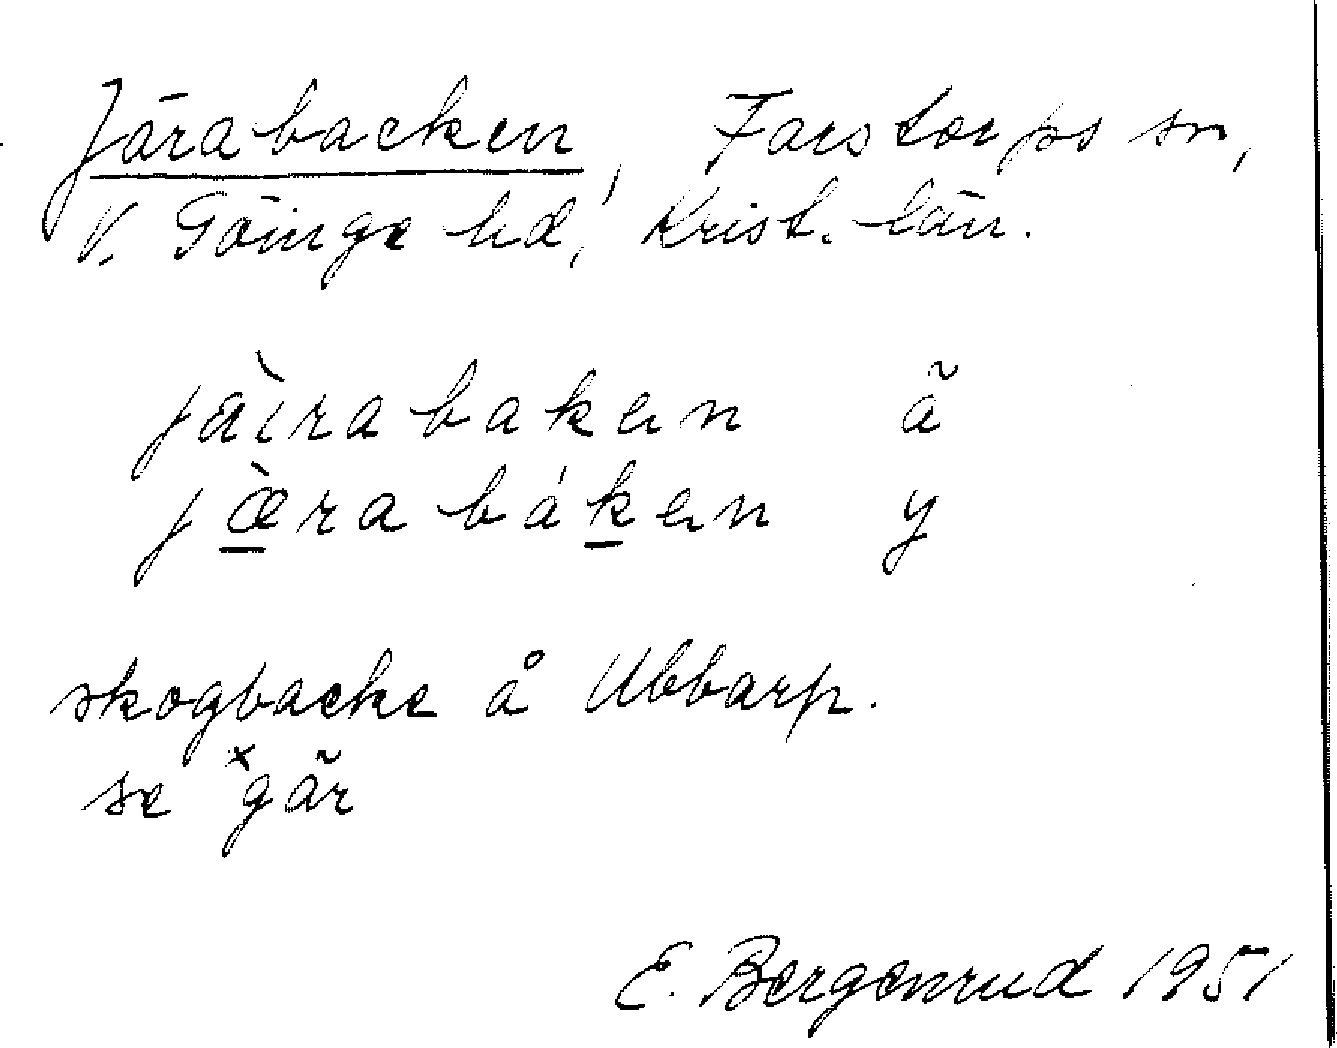 Järabacken, Farstorps sn,
V. Göinge hd, Krist. län.
jàirabaken ä
jæ̀rabáken y
skogbacke å Ubbarp.
se ˣgär
E. Bergenrud 1951